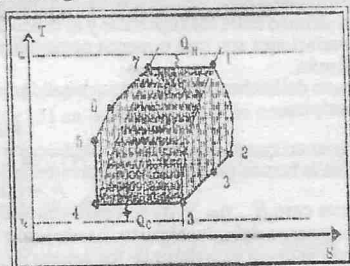 T
Q_H
7
1
6
5
2
3
4
3
Q_C
S